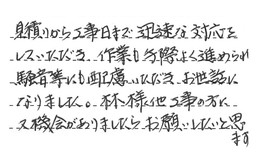 見積りから工事日まで迅速な対応を
していただき、作業も手際よく進められ
騒音等にも配慮いただきお世話に
なりました。林様他工事の方に
又機会がありましたらお願いしたいと思
ます